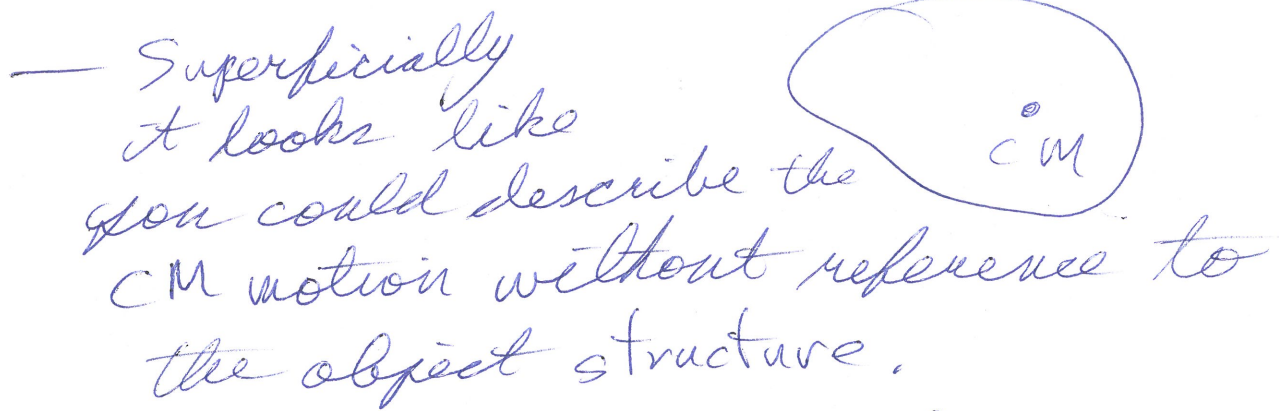 — Superficially
it looks like
you could describe the
CM motion without reference to
the object structure.
CM